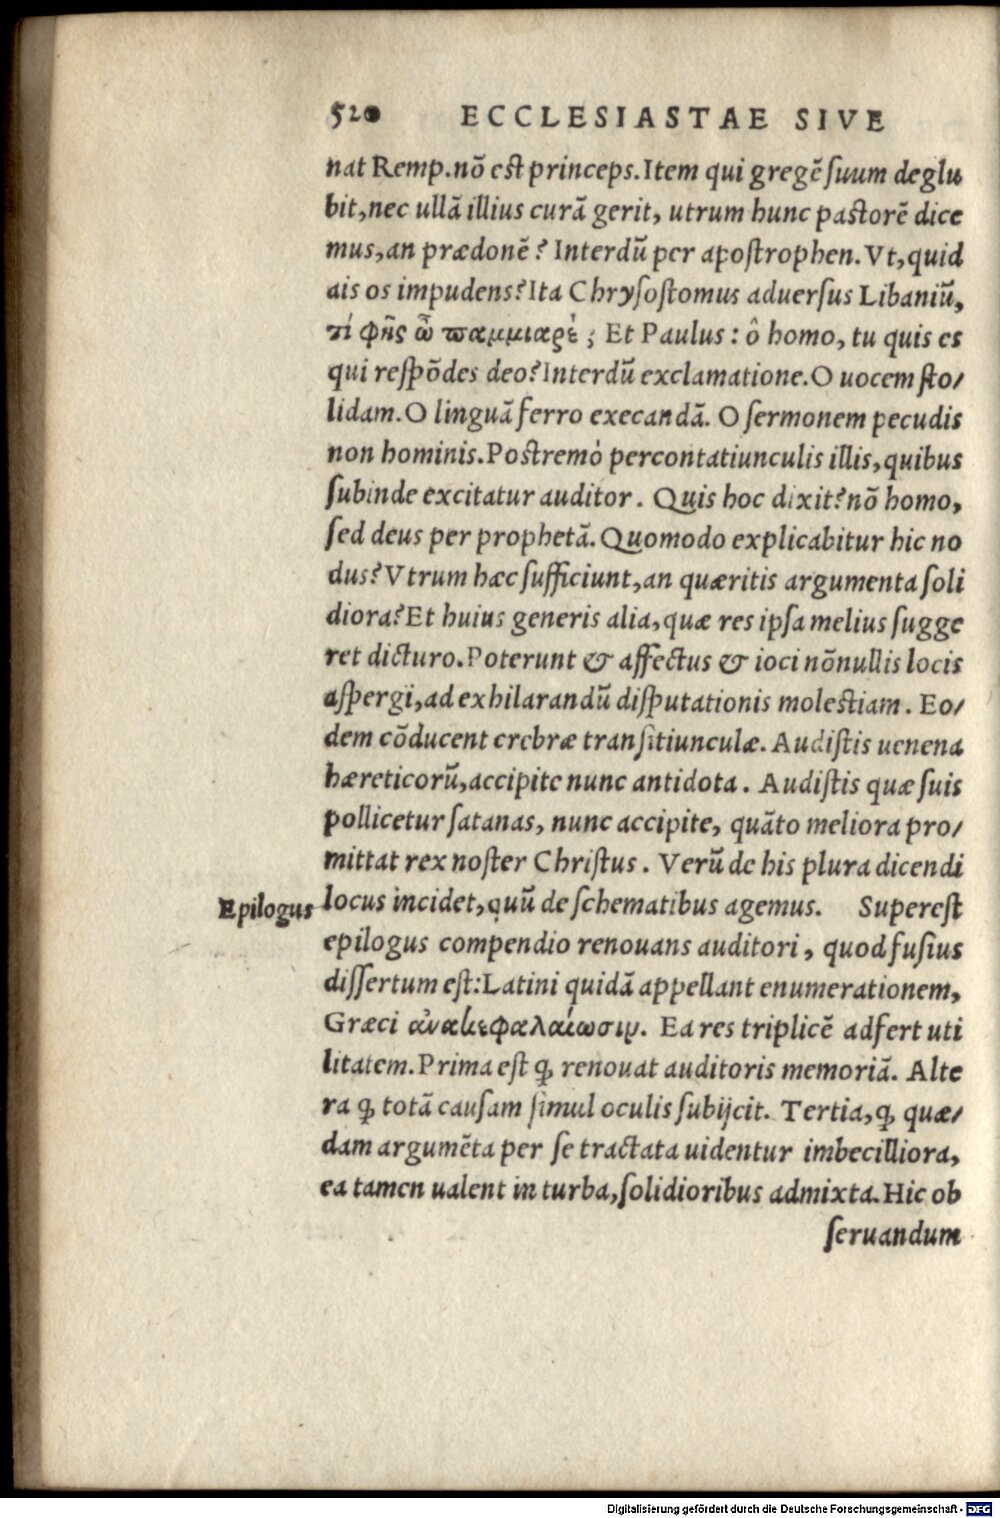 520 ECCLESIASTAE SIVE
nat Remp.nõ est princeps.Item qui gregẽ ſuum deglu
bit,nec ullã illius curã gerit, utrum hunc pastorẽ dice
mus,an prædonẽ? Interdũ per apoſtrophen.Vt,quid
ais os impudens?Ita Chryſoſtomus aduerſus Libaniũ,
τί φῂς ὦ παμμιαρὲ; Et Paulus: ô homo, tu quis es
qui reſpõdes deo?Interdũ exclamatione.O uocem ſto/
lidam.O linguã ferro execandã. O ſermonem pecudis
non hominis.Postremò percontatiunculis illis,quibus
ſubinde excitatur auditor. Quis hoc dixit?nõ homo,
ſed deus per prophetã.Quomodo explicabitur hic no
dus?Vtrum hæc ſufficiunt,an quæritis argumenta ſoli
diora?Et huius generis alia,quæ res ipſa melius ſugge
ret dicturo.Poterunt & affectus & ioci nõnullis locis
aſpergi,ad exhilarandũ diſputationis molestiam. Eo/
dem cõducent crebræ tranſitiunculæ. Audiſtis uenena
hæreticorũ,accipite nunc antidota. Audiſtis quæ ſuis
pollicetur ſatanas, nunc accipite, quãto meliora pro/
mittat rex noſter Chriſtus. Verũ de his plura dicendi
locus incidet,quũ de ſchematibus agemus. Supereſt
Epilogus
epilogus compendio renouans auditori, quod fuſius
diſſertum eſt:Latini quidã appellant enumerationem,
Græci ἀνακεφαλαίωσιν. Ea res triplicẽ adfert uti
litatem.Prima eſt ꝙ renouat auditoris memoriã. Alte
ra ꝙ totã cauſam ſimul oculis ſubijcit. Tertia,ꝙ quæ/
dam argumẽta per ſe tractata uidentur imbecilliora,
ea tamen ualent in turba,ſolidioribus admixta.Hic ob
ſeruandum
Digitalisierung gefördert durch die Deutsche Forschungsgemeinschaft - DFG